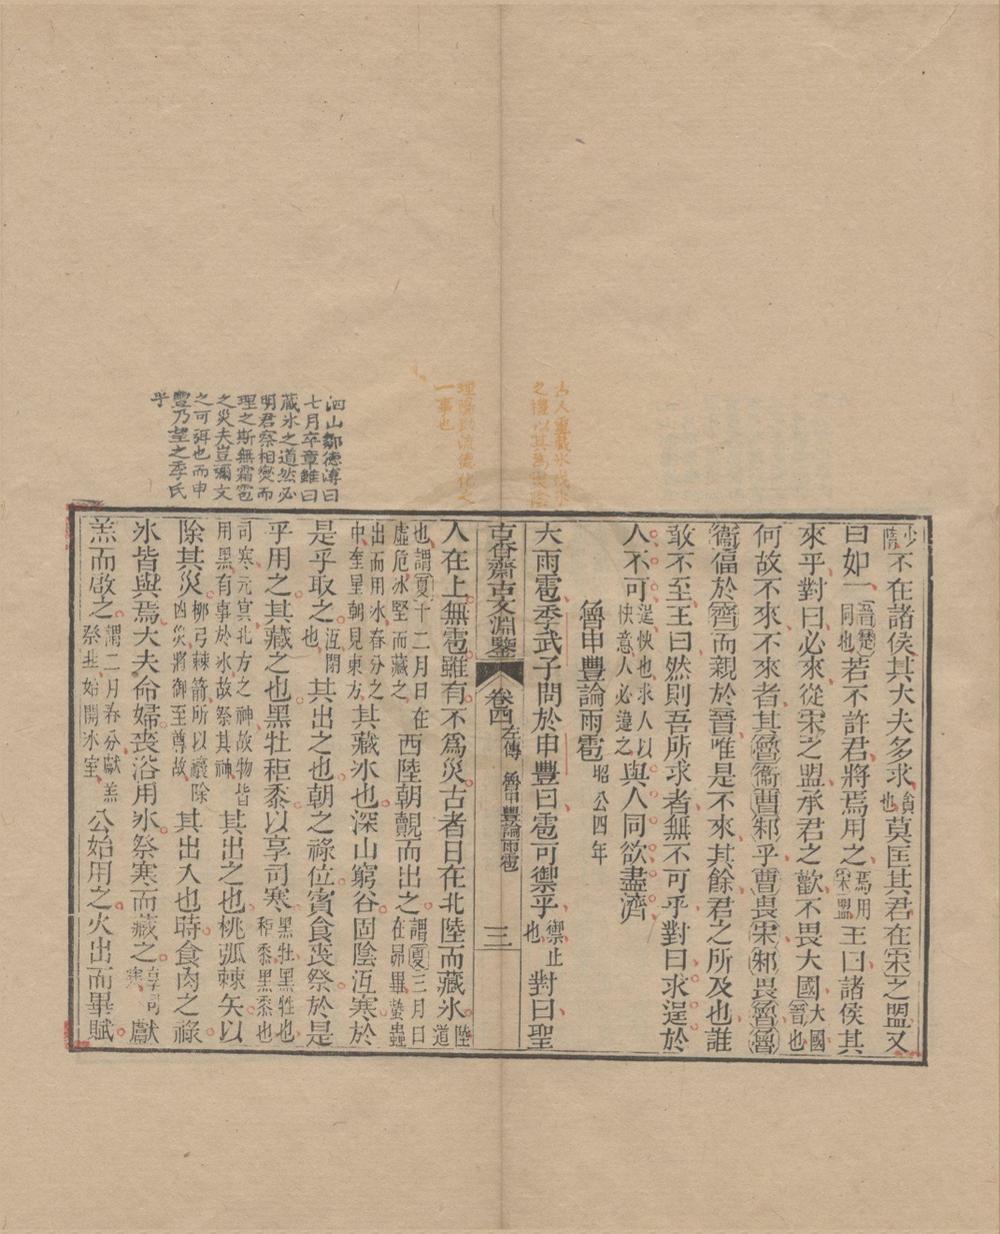 少隋不在諸侯其大夫多求貪也莫匡其君在宋之盟又
曰如一晉楚同也若不許君將焉用之焉用宋盟王曰諸侯其
來乎對曰必來從宋之盟承君之歡不畏大國大國晉也
何故不來不來者其魯衞曹邾乎曹畏宋邾畏魯魯
衞偪於齊而親於晉唯是不來其餘君之所及也誰
敢不至王曰然則吾所求者無不可乎對曰求逞於
人不可逞快也求人以快意人必違之與人同欲盡濟
魯申豐論雨雹昭公四年
大雨雹季武子問於申豐曰雹可禦乎禦止也對曰聖
古香齋古文淵鑒 卷四 左傳 魯申豐論雨雹 三
人在上無雹雖有不爲災古者日在北陸而藏氷陸道
也謂夏十二月日在虛危冰堅而藏之西陸朝覿而出之謂夏三月日在昴畢蟄蟲
出而用冰春分之中奎星朝見東方其藏氷也深山窮谷固陰沍寒於
是乎取之沍閉也其出之也朝之祿位賓食喪祭於是
乎用之其藏之也黑牡秬黍以享司寒黑牡黑牲也秬黍黑黍也
司寒元冥北方之神故物皆用黑有事於氷故祭其神其出之也桃弧棘矢以
除其災桃弓棘箭所以禳除凶災將御至尊故其出入也時食肉之祿
氷皆與焉大夫命婦喪浴用氷祭寒而藏之享司寒獻
羔而啟之謂二月春分獻羔祭韭始開冰室公始用之火出而畢賦
古人重藏氷
之禮以其爲
理陰陽流德化之
一事也
泗山鄒德溥曰
七月卒章雖曰
藏氷之道然必
明君察相燮而
理之斯無霜雹
之災夫豈彌文
之可弭也而申
豐乃望之季氏
乎